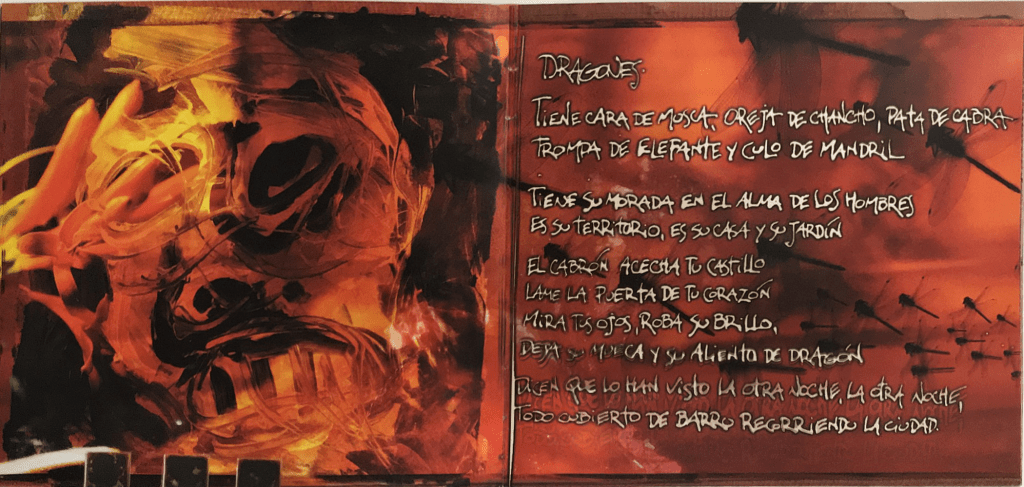 DRAGONES.
TIENE CARA DE MOSCA, OREJA DE CHANCHO, PATA DE CABRA
TROMPA DE ELEFANTE Y CULO DE MANDRIL
TIENE SU MORADA EN EL ALMA DE LOS HOMBRES
ES SU TERRITORIO, ES SU CASA Y SU JARDÍN
EL CABRÓN ACECHA TU CASTILLO
LAME LA PUERTA DE TU CORAZÓN
MIRA TUS OJOS, ROBA SU BRILLO,
DEJA SU MUECA Y SU ALIENTO DE DRAGÓN
DICEN QUE LO HAN VISTO LA OTRA NOCHE, LA OTRA NOCHE,
TODO CUBIERTO DE BARRO RECORRIENDO LA CIUDAD.